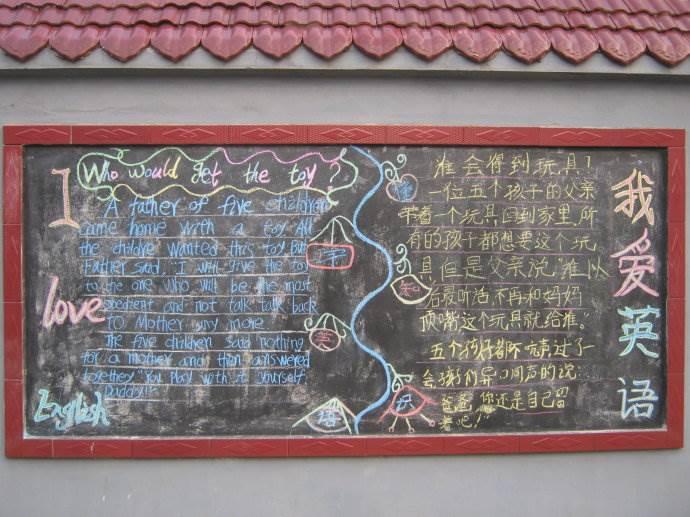 I
love
English
Who would get the toy?
A father of five children
came home with a toy All
the childre wanted this toy But
Father said. I will give the toy
to the one who will be the most
obedient and not talk talk back
TO Mother any more
The five children said nothing
for a mother and then answered
together "You Play with it yourself
Daddy!"
学
英
语
知
识
谁会得到玩具！
一位五个孩子的父亲
带着一个玩具回到家里，所
有的孩子都想要这个玩
具但是父亲说"谁以
后最听话，不再和妈妈
顶嘴这个玩具就给谁."
五个孩子都不吭声过了一
会孩们异口同声的说：
爸爸 你还是自己留
着吧！
我爱英语